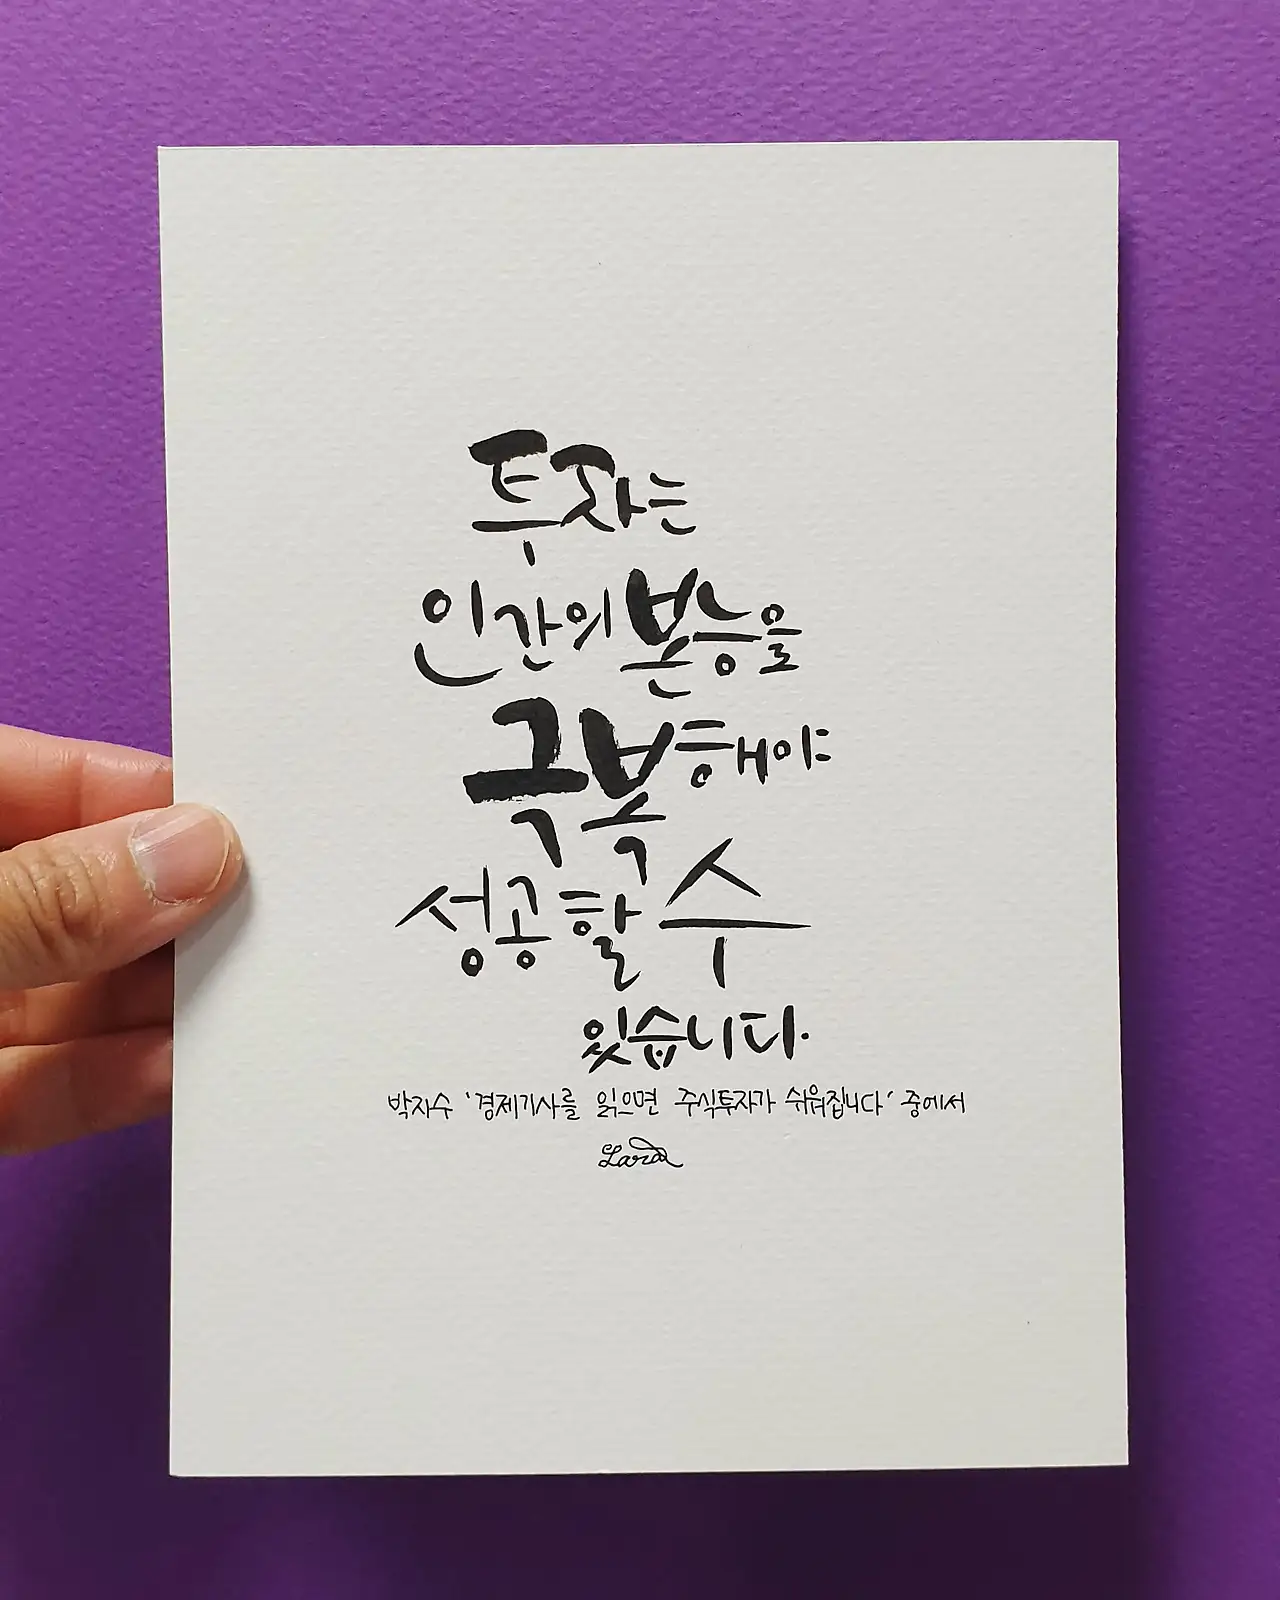 투자는
인간의 본능을
극복해야
성공할 수
있습니다.
박지수 '경제기사를 읽으면 주식투자가 쉬워집니다' 중에서
Lara